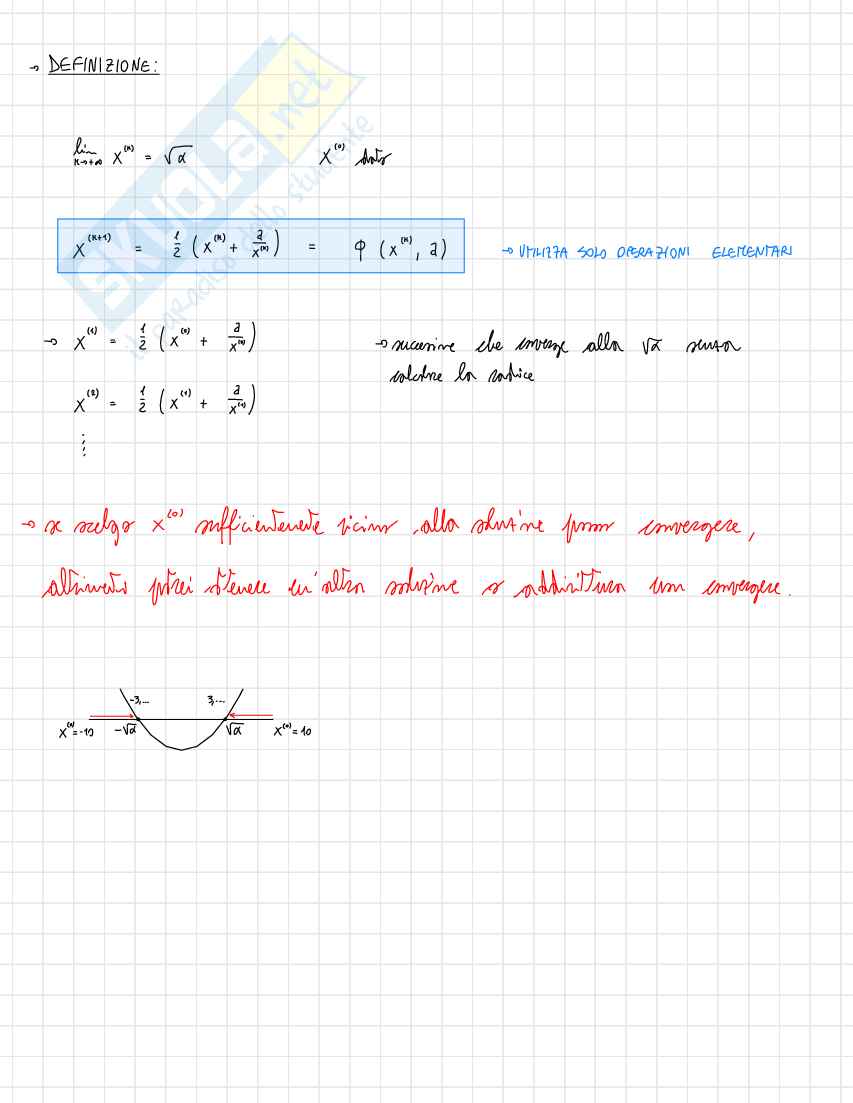 → DEFINIZIONE:
lim x^(k) = √a x^(0) dato
k→+∞
x^(k+1) = 1/2 (x^(k) + a/x^(k)) = φ (x^(k), a) → UTILIZZA SOLO OPERAZIONI ELEMENTARI
→ x^(1) = 1/2 (x^(0) + a/x^(0)) → successione che converge alla √a senza
calcolare la radice
x^(2) = 1/2 (x^(1) + a/x^(1))
⋮
→ se scelgo x^(0) sufficientemente vicino alla soluzione posso convergere,
altrimenti potrei ottenere un'altra soluzione o addirittura non convergere.
-3,... 3,...
x^(0)=-10 -√a √a x^(0)=10
SKUOLA.net
il paradiso dello studente